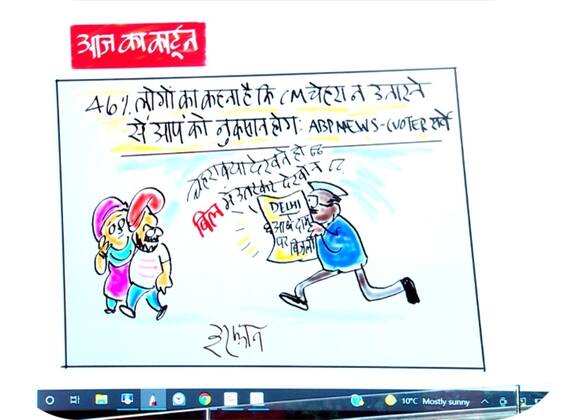 आज का कार्टून
46% लोगों का कहना है कि CM चेहरा न उतारने
से 'आप' को नुकसान होगा: ABP NEWS-CVOTER सर्वे
चेहरा क्या देखते हो
बिल में उतरकर देखो न
DELHI
आधे दाम
पर
बिजली
इरफ़ान
10°C Mostly sunny